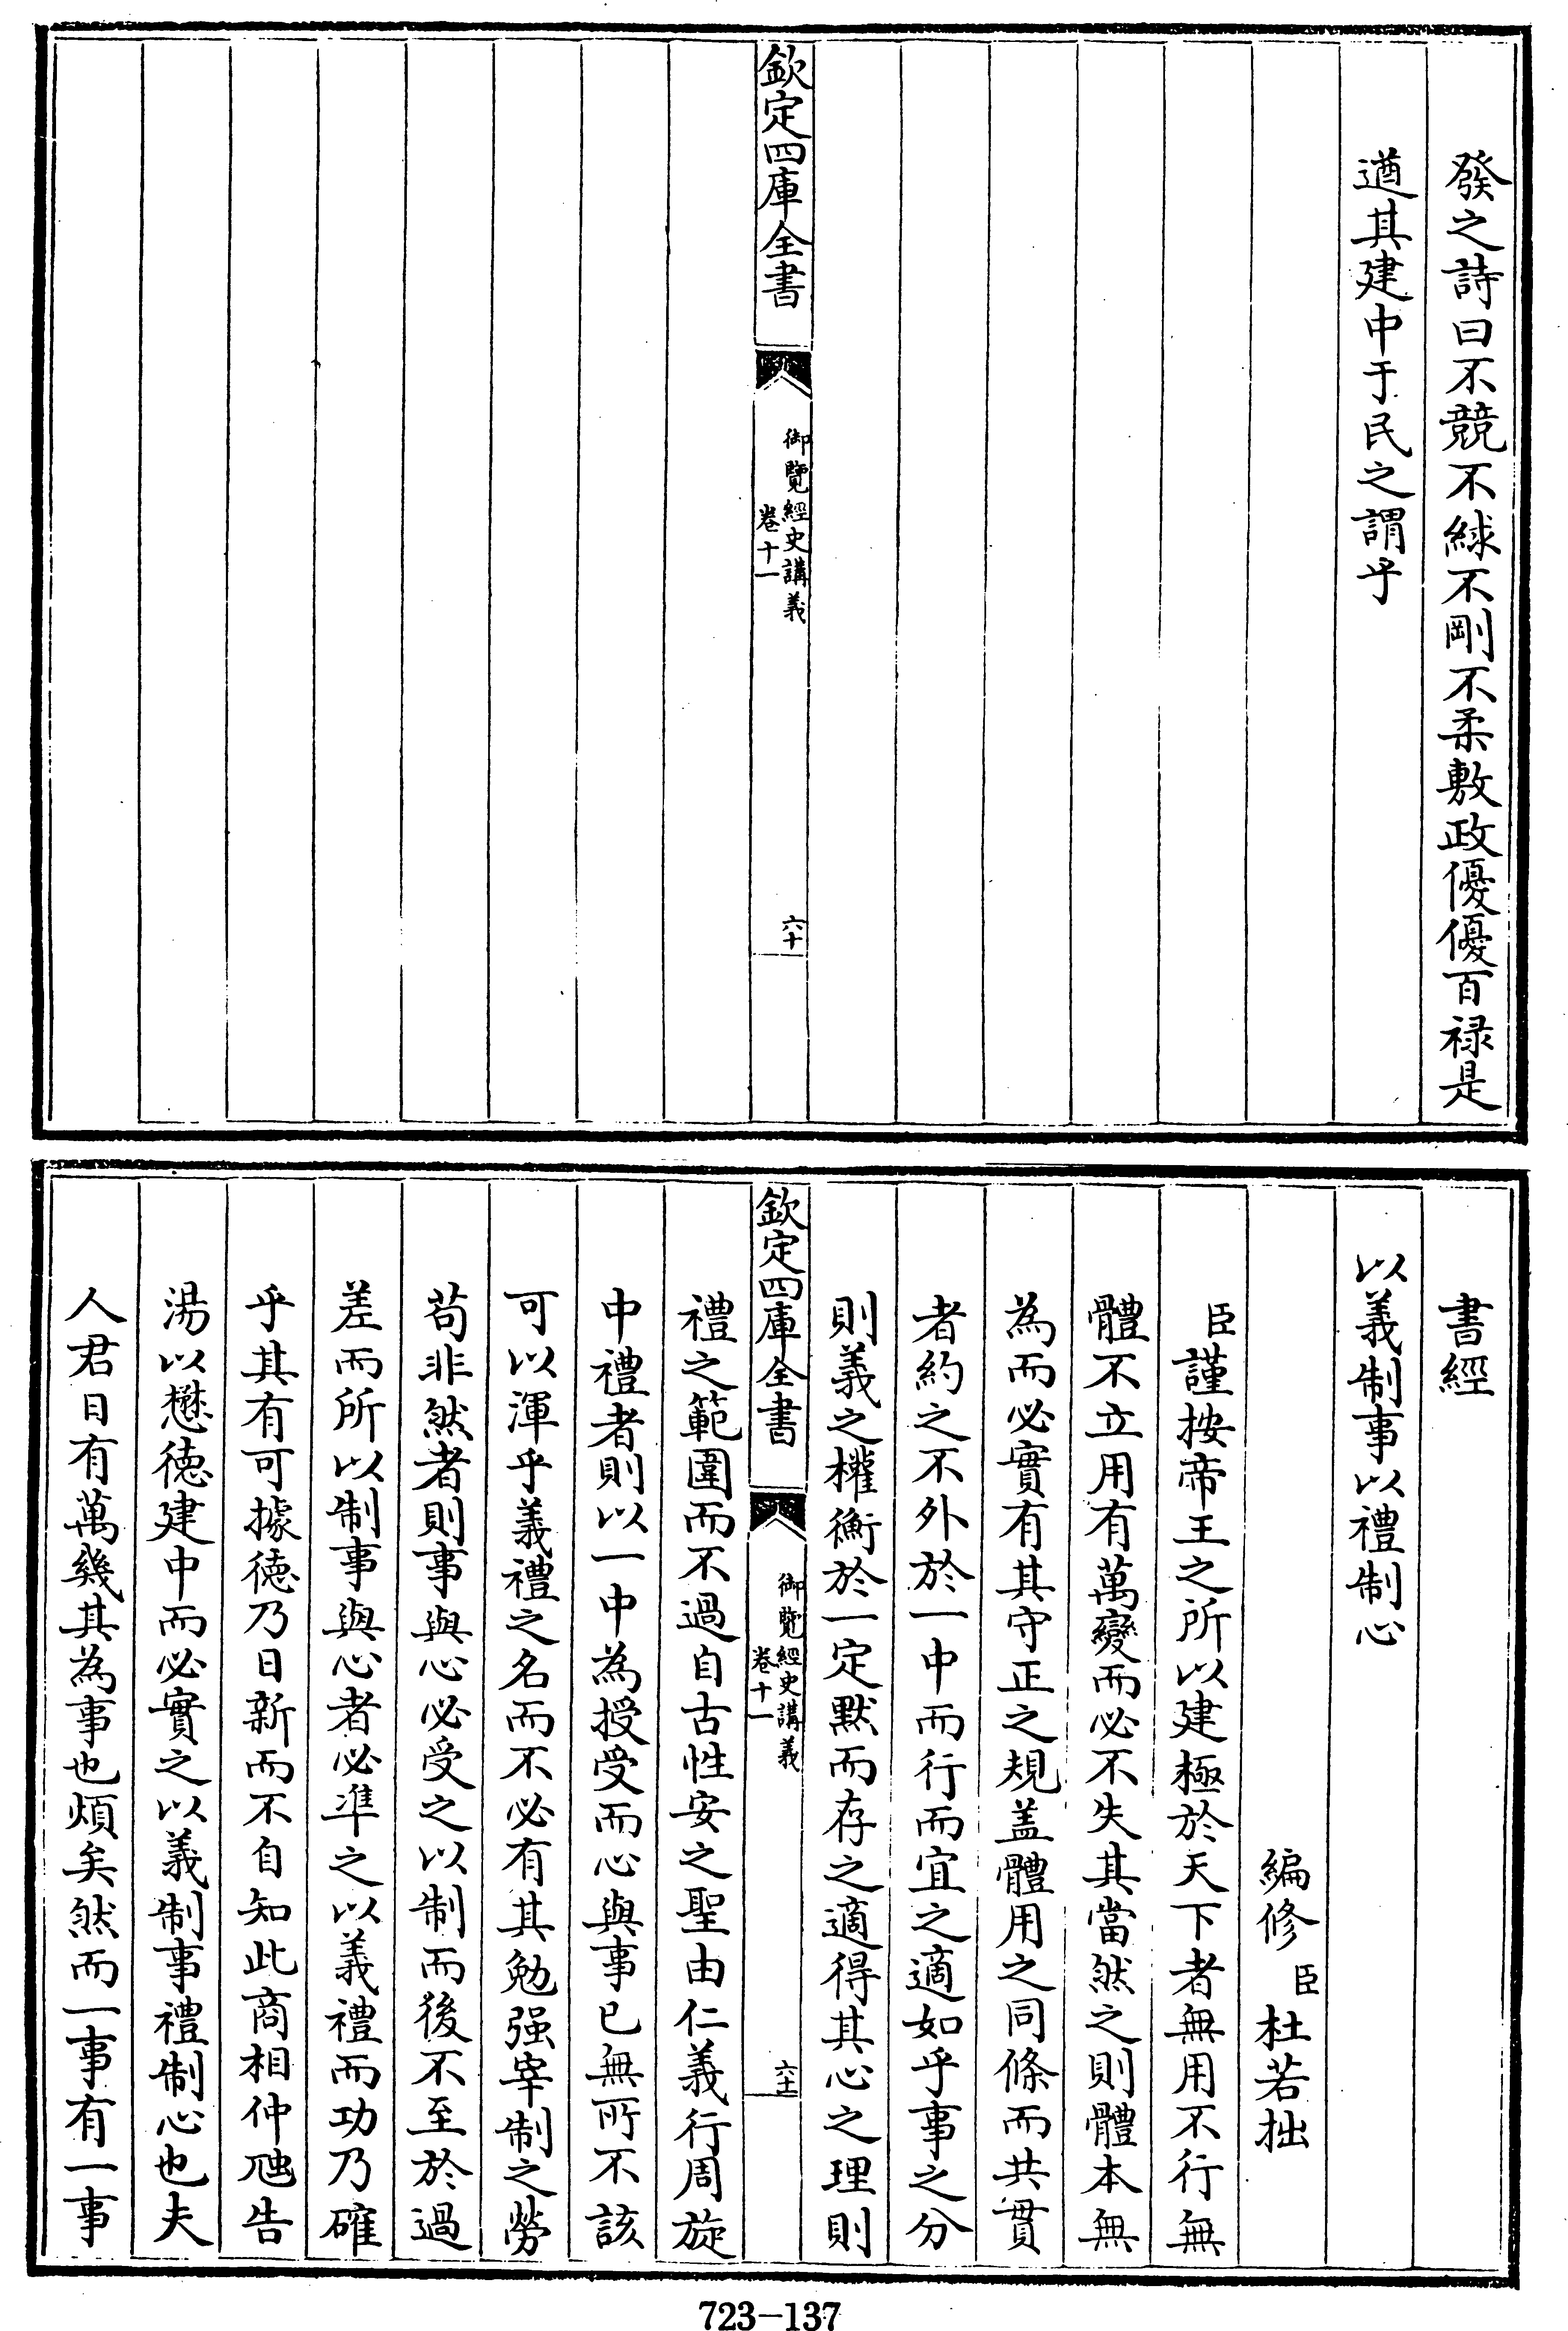 發之詩曰不競不絿不剛不柔敷政優優百禄是
遒其建中于民之謂乎
欽定四庫全書
御覽經史講義
卷十一
六十
書經
以義制事以禮制心
編修臣杜若拙
臣謹按帝王之所以建極於天下者無用不行無
體不立用有萬變而必不失其當然之則體本無
為而必實有其守正之規盖體用之同條而共貫
者約之不外於一中而行而宜之適如乎事之分
則義之權衡於一定黙而存之適得其心之理則
欽定四庫全書
御覽經史講義
卷十一
六十一
禮之範圍而不過自古性安之聖由仁義行周旋
中禮者則以一中為授受而心與事已無所不該
可以渾乎義禮之名而不必有其勉强宰制之勞
苟非然者則事與心必受之以制而後不至於過
差而所以制事與心者必準之以義禮而功乃確
乎其有可據徳乃日新而不自知此商相仲虺告
湯以懋德建中而必實之以義制事禮制心也夫
人君日有萬幾其為事也煩矣然而一事有一事
723-137